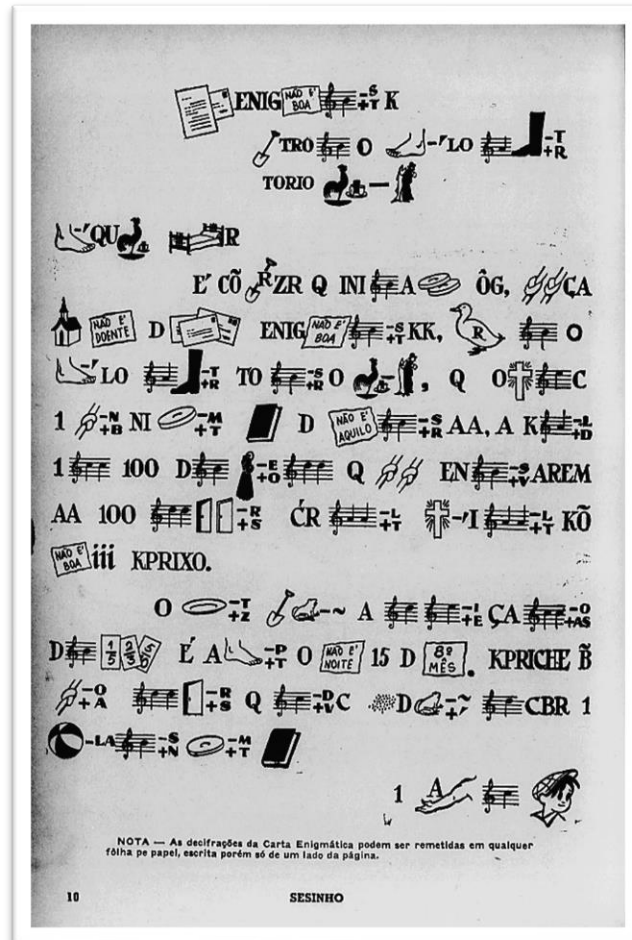 ENIG NÃO É BOA -S +T K
TRO O -' LO -T +R
TORIO -
-' QU R
E' CÕ R ZR Q INI A ÔG, ÇA
NÃO E' DOENTE D ENIG NÃO E' BOA -S +T KK, R O
-' LO -T +R TO -S +R O -, Q O C
1 -N +B NI -M +T D NÃO E' AQUILO -S +R AA, A K -L +D
1 100 D -E +O Q EN -S +V AREM
AA 100 -R +S ĆR -L +T -' I -L +T KÕ
NÃO E' BOA iii KPRIXO.
O -T +Z -~ A -I +E ÇA -O +AS
D 1/5 2/3 5/6 É A -P +T O NÃO E' NOITE 15 D 8º MÊS. KPRICHE B̃
-O +A -R +S Q -D +V C D -~ +, CBR 1
-LA -S +N -M +T
1 A
NOTA — As decifrações da Carta Enigmática podem ser remetidas em qualquer
fôlha pe papel, escrita porém só de um lado da página.
10 SESINHO